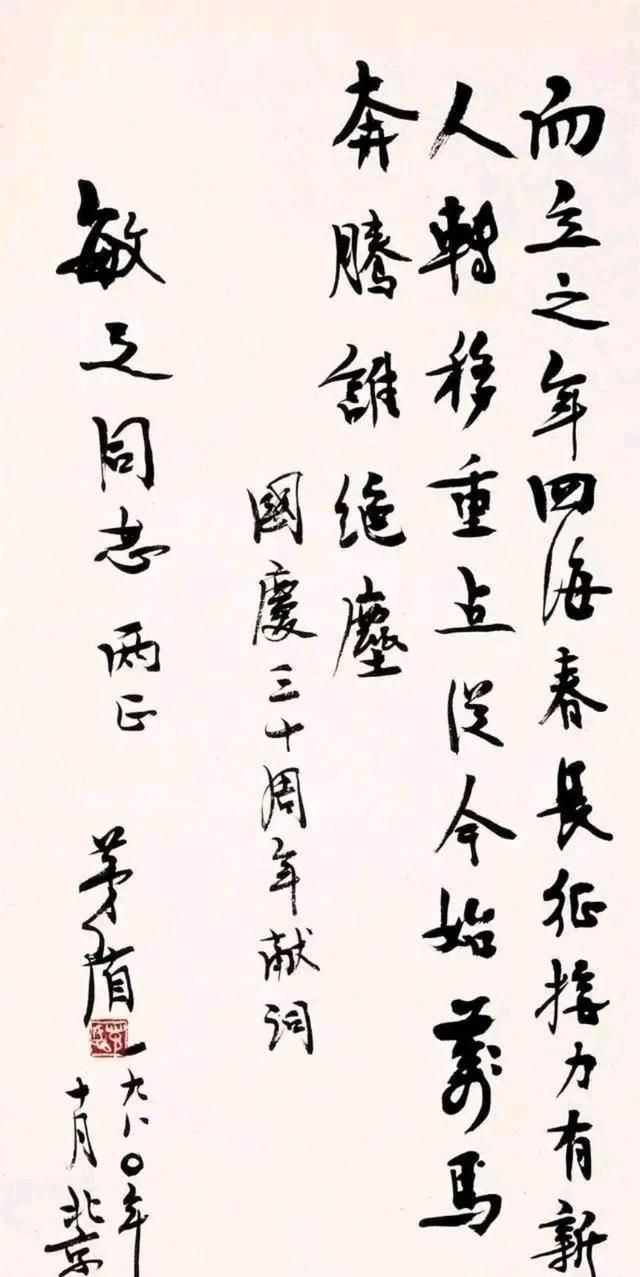 而立之年四海春长征接力有新
人轉移重点从今始萬马
奔腾誰绝塵
國慶三十周年献词
敏之同志两正
茅盾
一九八〇年
十月北京